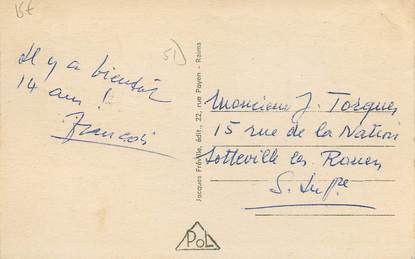 15€
51
Il y a bientôt
14 ans !
François
Jacques Fréville, édit., 22, rue Payen - Reims
Monsieur J. Torques
15 rue de la Nation
Sotteville les Rouen
S. Infre
POL